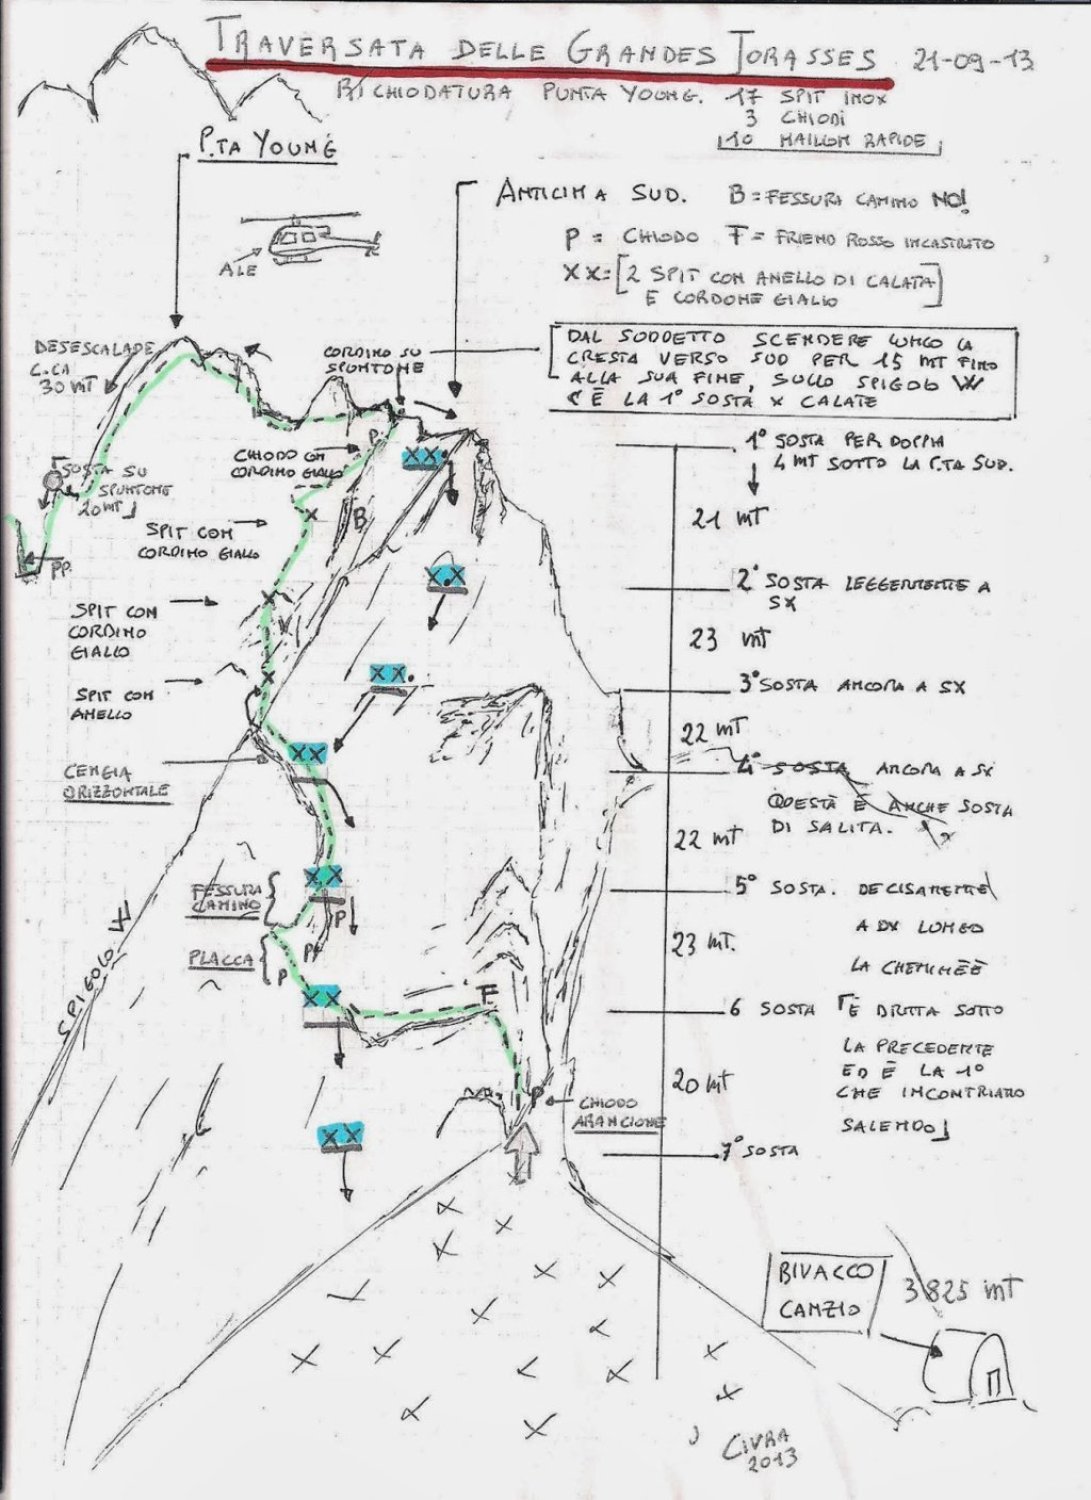 TRAVERSATA DELLE GRANDES JORASSES 21-09-13
RICHIODATURA PUNTA YOUNG. 17 SPIT INOX
3 CHIODI
10 MAILLON RAPIDE
P.TA YOUNG
ANTICIMA SUD. B = FESSURA CAMINO NO!
P = CHIODO F = FRIEND ROSSO INCASTRATO
XX = [2 SPIT CON ANELLO DI CALATA
E CORDONE GIALLO]
ALE
DESESCALADE
C.CA
30 MT
CORDINO SU
SPUNTONE
DAL SODDETTO SCENDERE LUNGO LA
CRESTA VERSO SUD PER 15 MT FINO
ALLA SUA FINE, SULLO SPIGOLO W
C'È LA 1° SOSTA X CALATE
P.
CHIODO CON
CORDINO GIALLO
XX.
1° SOSTA PER DOPPIA
4 MT SOTTO LA P.TA SUD.
SOSTA SU
SPUNTONE
20 MT
X
B
21 MT
SPIT CON
CORDINO GIALLO
PP.
X.X
2° SOSTA LEGGERMENTE A
SX
SPIT CON
CORDINO
GIALLO
X
23 MT
XX.
3° SOSTA ANCORA A SX
SPIT CON
ANELLO
X
22 MT
XX
CENGIA
ORIZZONTALE
4° SOSTA ANCORA A SX
QUESTA È ANCHE SOSTA
DI SALITA.
22 MT
XX
FESSURA
CAMINO
P
5° SOSTA. DECISAMENTE
A DX LUNGO
LA CHEMINÈÈ
SPIGOLO W
P
23 MT.
PLACCA
P
XX
F
6 SOSTA È DRITTA SOTTO
LA PRECEDENTE
ED È LA 1°
CHE INCONTRIAMO
SALENDO
20 MT
P
CHIODO
ARANCIONE
XX
7° SOSTA
BIVACCO
CANZIO
3825 MT
CIVRA
2013